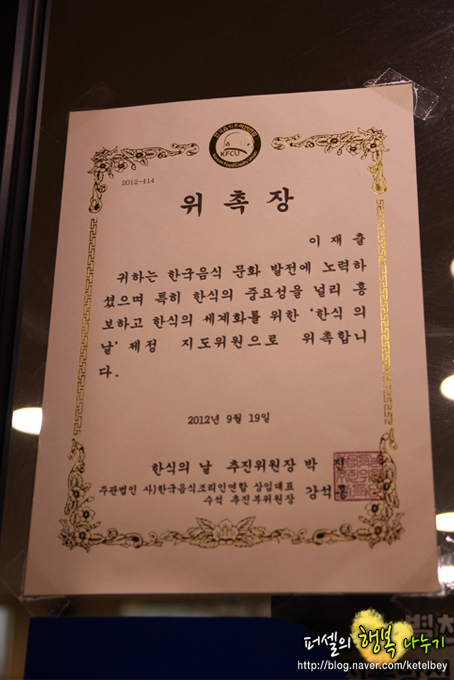 KFCU
2012-414
위 촉 장
이 재 출
귀하는 한국음식 문화 발전에 노력하
셨으며 특히 한식의 중요성을 널리 홍
보하고 한식의 세계화를 위한 '한식 의
날' 제정 지도위원으로 위촉합니
다.
2012년 9월 19일
한식의 날 추진위원장 박
주관법인 사)한국음식조리인연합 상임대표
수석 추진부위원장 강석홍
퍼셀의 행복 나누기
http://blog.naver.com/ketelbey